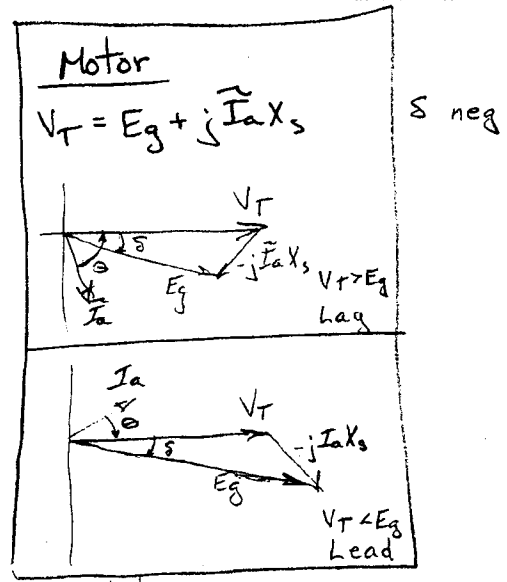 Motor
V_T = E_g + j Ĩ_a X_s
δ neg
V_T
δ
θ
-j Ĩ_a X_s
E_g
Ĩ_a
V_T > E_g
Lag
I_a
θ
V_T
δ
-j I_a X_s
E_g
V_T < E_g
Lead